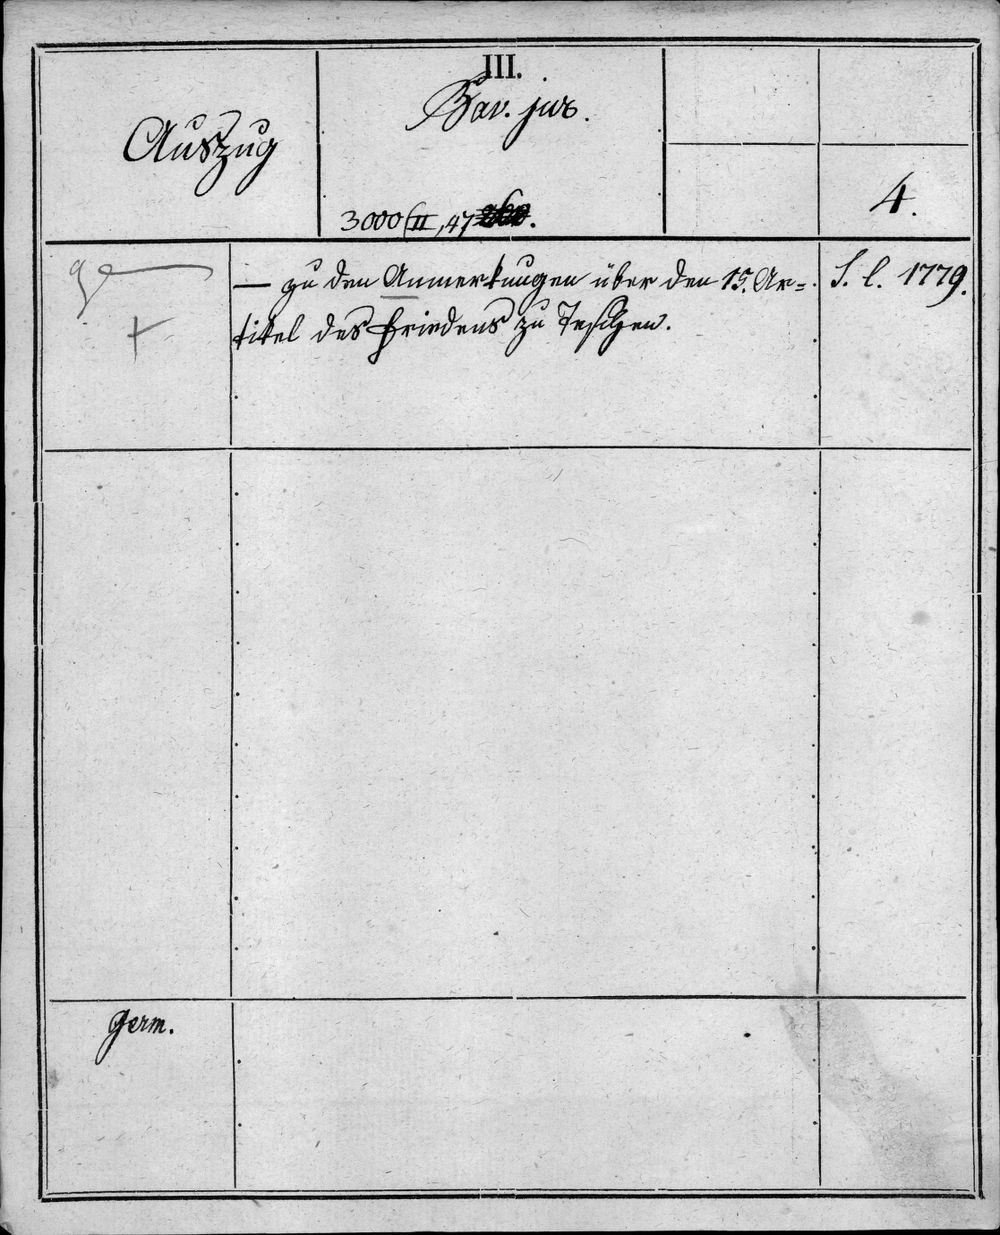 III.
Bav. jur.
Auszug
3000/II, 47
4.
— zu den Anmerkungen über den 15. Ar=
tikel des Friedens zu Teschen.
S. l. 1779.
Germ.